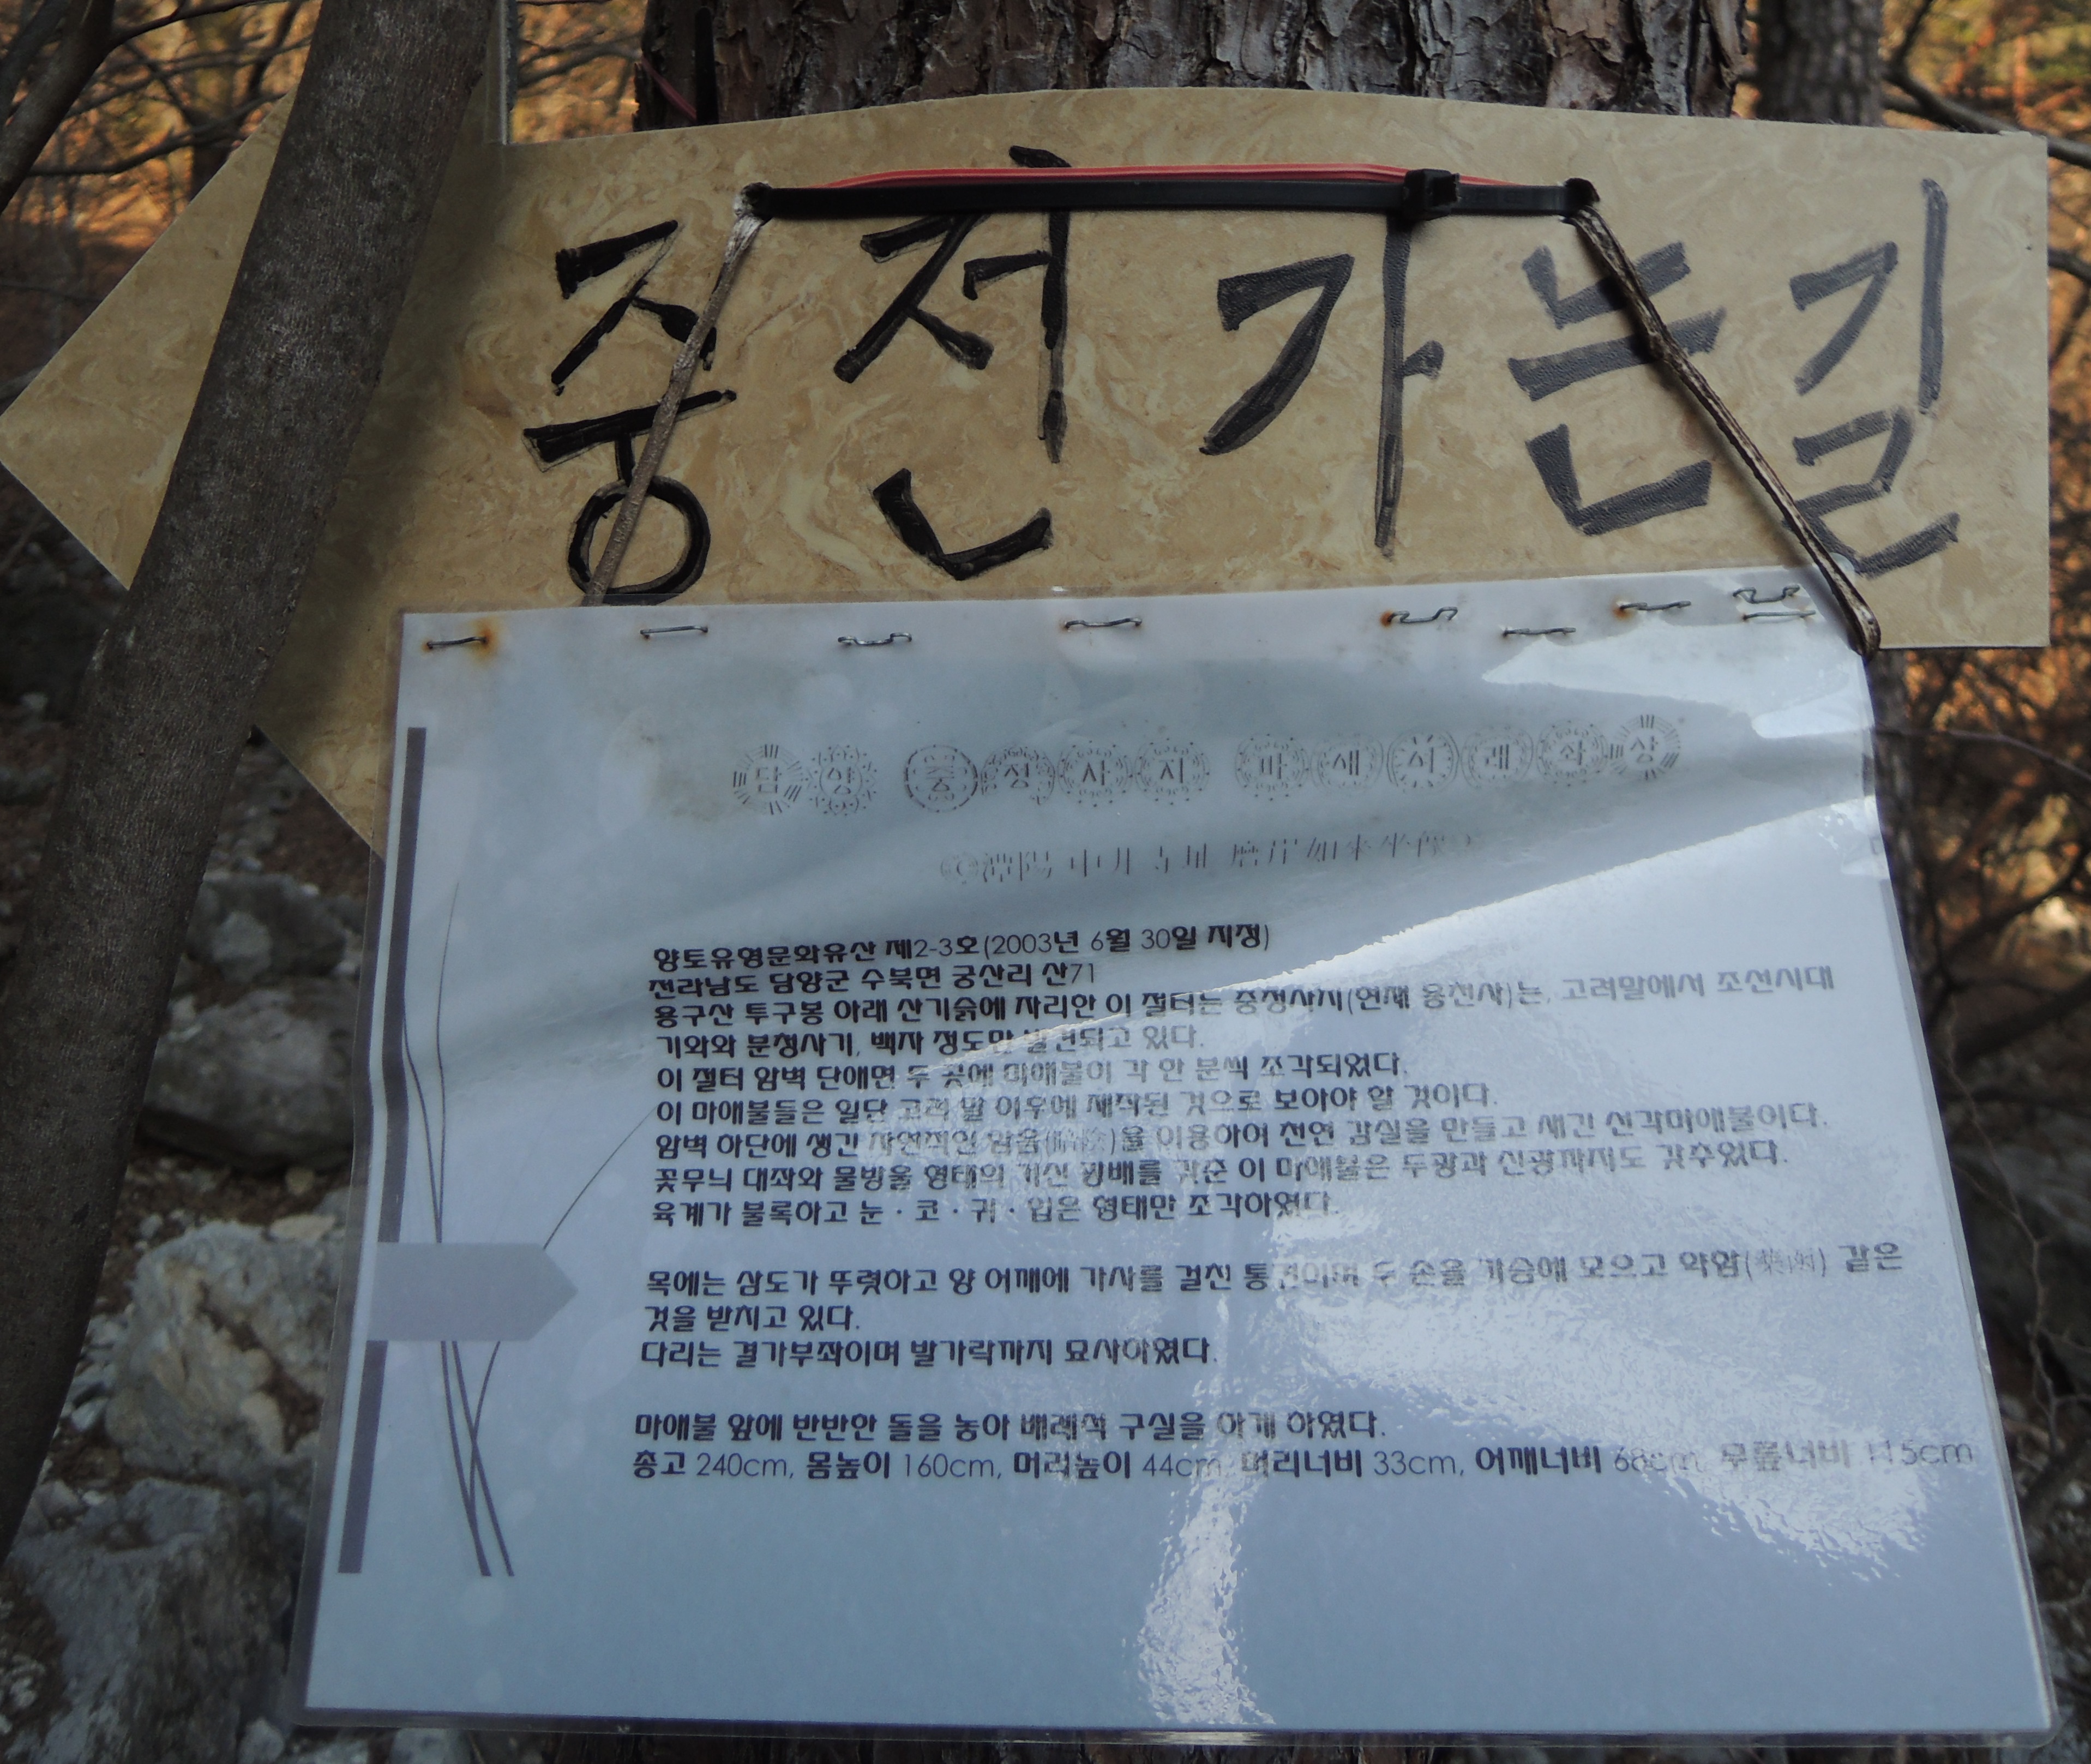 중전가는길
담양 중정사지 마애여래좌상
향토유형문화유산 제2-3호(2003년 6월 30일 지정)
전라남도 담양군 수북면 궁산리 산71
용구산 투구봉 아래 산기슭에 자리한 이 절터는 중정사지(현재 용천사)는, 고려말에서 조선시대
기와와 분청사기, 백자 정도만 발견되고 있다.
이 절터 암벽 단애면 두 곳에 마애불이 각 한 분씩 조각되었다.
이 마애불들은 일단 고려 말 이후에 제작된 것으로 보아야 할 것이다.
암벽 하단에 생긴 자연적인 암음(岩陰)을 이용하여 천연 감실을 만들고 새긴 선각마애불이다.
꽃무늬 대좌와 물방울 형태의 거신 광배를 갖춘 이 마애불은 두광과 신광까지도 갖추었다.
육계가 볼록하고 눈 · 코 · 귀 · 입은 형태만 조각하였다.
목에는 삼도가 뚜렷하고 양 어깨에 가사를 걸친 통견이며 두 손을 가슴에 모으고 약함(藥函) 같은
것을 받치고 있다.
다리는 결가부좌이며 발가락까지 묘사하였다.
마애불 앞에 반반한 돌을 놓아 배례석 구실을 하게 하였다.
총고 240cm, 몸높이 160cm, 머리높이 44cm, 머리너비 33cm, 어깨너비 68cm, 무릎너비 115cm